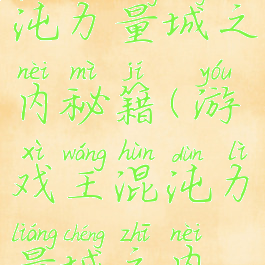 沌力量城之
nèi mì jí yóu
内秘籍(游
xì wáng hùn dùn lì
戏王混沌力
liáng chéng zhī nèi
量城之内